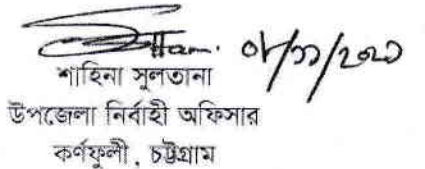 ০৮/১১/২০২১
শাহিনা সুলতানা
উপজেলা নির্বাহী অফিসার
কর্ণফুলী, চট্টগ্রাম